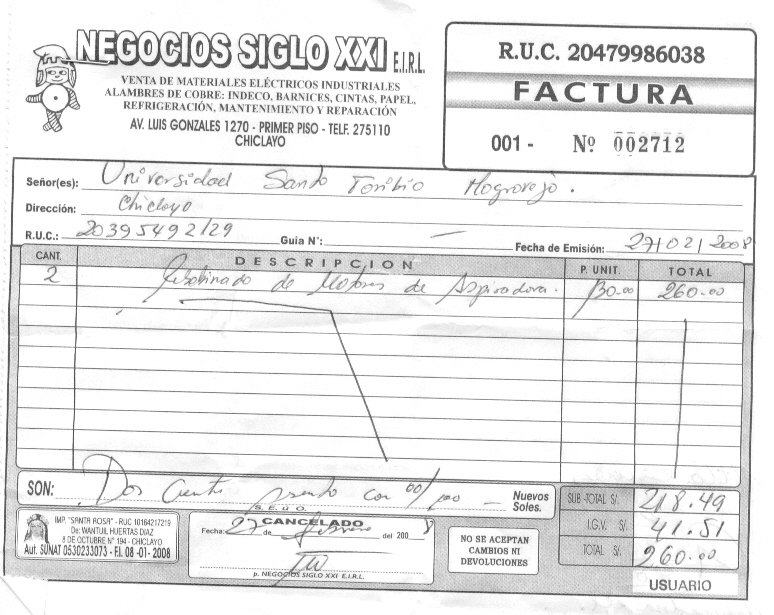 NEGOCIOS SIGLO XXI E.I.R.L.
VENTA DE MATERIALES ELÉCTRICOS INDUSTRIALES
ALAMBRES DE COBRE: INDECO, BARNICES, CINTAS, PAPEL,
REFRIGERACIÓN, MANTENIMIENTO Y REPARACIÓN
AV. LUIS GONZALES 1270 - PRIMER PISO - TELF. 275110
CHICLAYO
R.U.C. 20479986038
FACTURA
001 - Nº 002712
Señor(es): Universidad Santo Toribio Mogrovejo.
Dirección: Chiclayo
R.U.C.: 20395492129 Guia N°: — Fecha de Emisión: 27/02/2008
CANT. DESCRIPCION P. UNIT. TOTAL
2 Rebobinado de Motores de Aspiradora. 130.00 260.00
SON: Dos Cientos con 00/100 — Nuevos Soles.
S.E.ú O.
SUB -TOTAL S/. 218.49
I.G.V. S/. 41.51
TOTAL S/. 260.00
USUARIO
IMP. "SANTA ROSA" - RUC 10164217219
De: WANTUIL HUERTAS DIAZ
8 DE OCTUBRE N° 194 - CHICLAYO
Aut. SUNAT 0530233073 - F.I. 08 -01- 2008
CANCELADO
Fecha: 27 de febrero del 2008
p. NEGOCIOS SIGLO XXI E.I.R.L.
NO SE ACEPTAN
CAMBIOS NI
DEVOLUCIONES